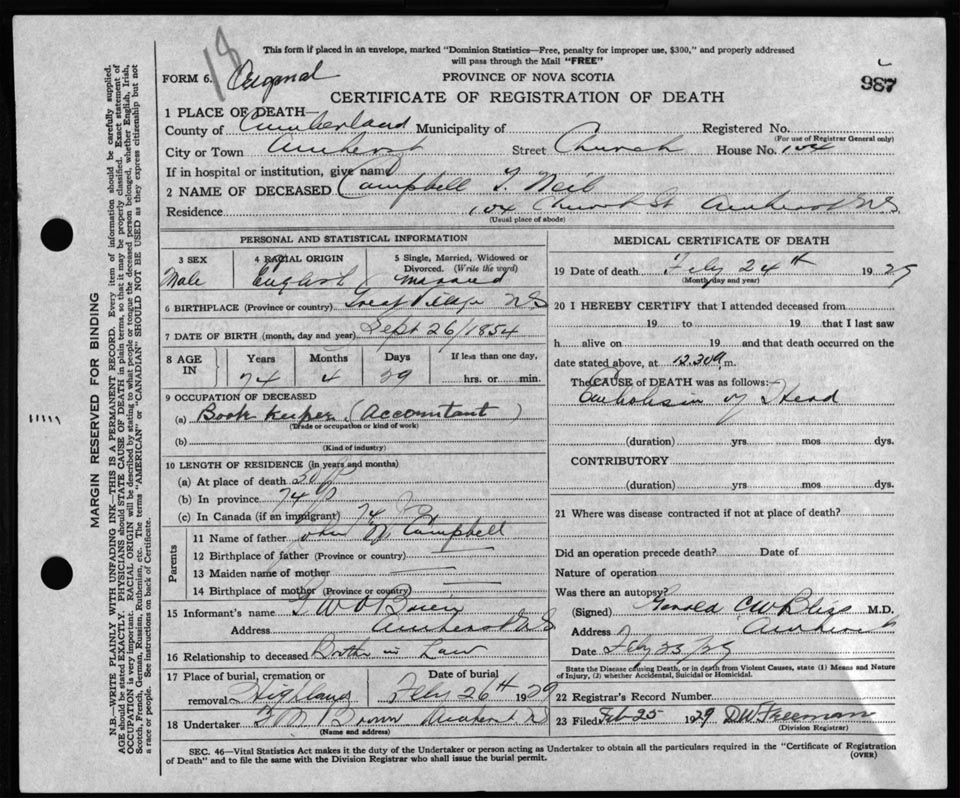 18
This form if placed in an envelope, marked "Dominion Statistics—Free, penalty for improper use, $300," and properly addressed
will pass through the Mail "FREE"
FORM 6. Original
PROVINCE OF NOVA SCOTIA
987
CERTIFICATE OF REGISTRATION OF DEATH
1 PLACE OF DEATH—
County of Cumberland Municipality of Registered No.
(For use of Registrar General only)
City or Town Amherst Street Church House No. 104
If in hospital or institution, give name
2 NAME OF DECEASED Campbell T. Neil
Residence 104 Church St Amherst N.S
(Usual place of abode)
PERSONAL AND STATISTICAL INFORMATION
3 SEX Male
4 RACIAL ORIGIN English
5 Single, Married, Widowed or Divorced. (Write the word) Married
6 BIRTHPLACE (Province or country) Great Village N S
7 DATE OF BIRTH (month, day and year) Sept 26/1854
8 AGE IN Years Months Days If less than one day,
74 4 29 hrs. or min.
9 OCCUPATION OF DECEASED
(a) Book Keeper (Accountant)
(Trade or occupation or kind of work)
(b)
(Kind of industry)
10 LENGTH OF RESIDENCE (in years and months)
(a) At place of death
(b) In province 74
(c) In Canada (if an immigrant) 74
Parents
11 Name of father John Campbell
12 Birthplace of father (Province or country) —
13 Maiden name of mother —
14 Birthplace of mother (Province or country) —
15 Informant's name O'Brien
Address Amherst N S
16 Relationship to deceased Brother in Law
17 Place of burial, cremation or removal Highland
Date of burial Feby 26th 1929
18 Undertaker Brown Amherst N S
(Name and address)
MEDICAL CERTIFICATE OF DEATH
19 Date of death Feby 24th 1929
(Month, day and year)
20 I HEREBY CERTIFY that I attended deceased from
19 to 19 that I last saw
h alive on 19 and that death occurred on the
date stated above, at 12.30 m.
The CAUSE of DEATH was as follows:
Embolism of Head
(duration) yrs mos dys.
CONTRIBUTORY
(duration) yrs mos dys.
21 Where was disease contracted if not at place of death?
Did an operation precede death? Date of
Nature of operation
Was there an autopsy?
(Signed) Harold C W Bliss M.D.
Address Amherst
Date Feby 25/29
State the Disease causing Death, or in death from Violent Causes, state (1) Means and Nature
of Injury, (2) whether Accidental, Suicidal or Homicidal.
22 Registrar's Record Number
23 Filed Feb 25 1929 D W Freeman
(Division Registrar)
SEC. 46—Vital Statistics Act makes it the duty of the Undertaker or person acting as Undertaker to obtain all the particulars required in the "Certificate of Registration
of Death" and to file the same with the Division Registrar who shall issue the burial permit. (OVER)
MARGIN RESERVED FOR BINDING
N.B.—WRITE PLAINLY WITH UNFADING INK—THIS IS A PERMANENT RECORD. Every item of information should be carefully supplied.
AGE should be stated EXACTLY. PHYSICIANS should STATE CAUSE OF DEATH in plain terms, so that it may be properly classified. Exact statement of
OCCUPATION is very important. RACIAL ORIGIN will be described by stating to what people or tongue the deceased person belonged, whether English, Irish,
Scotch, French, German, Russian, Ruthenian, etc. The terms "AMERICAN" or "CANADIAN" SHOULD NOT BE USED as they express citizenship but not
a race or people. See instructions on back of Certificate.